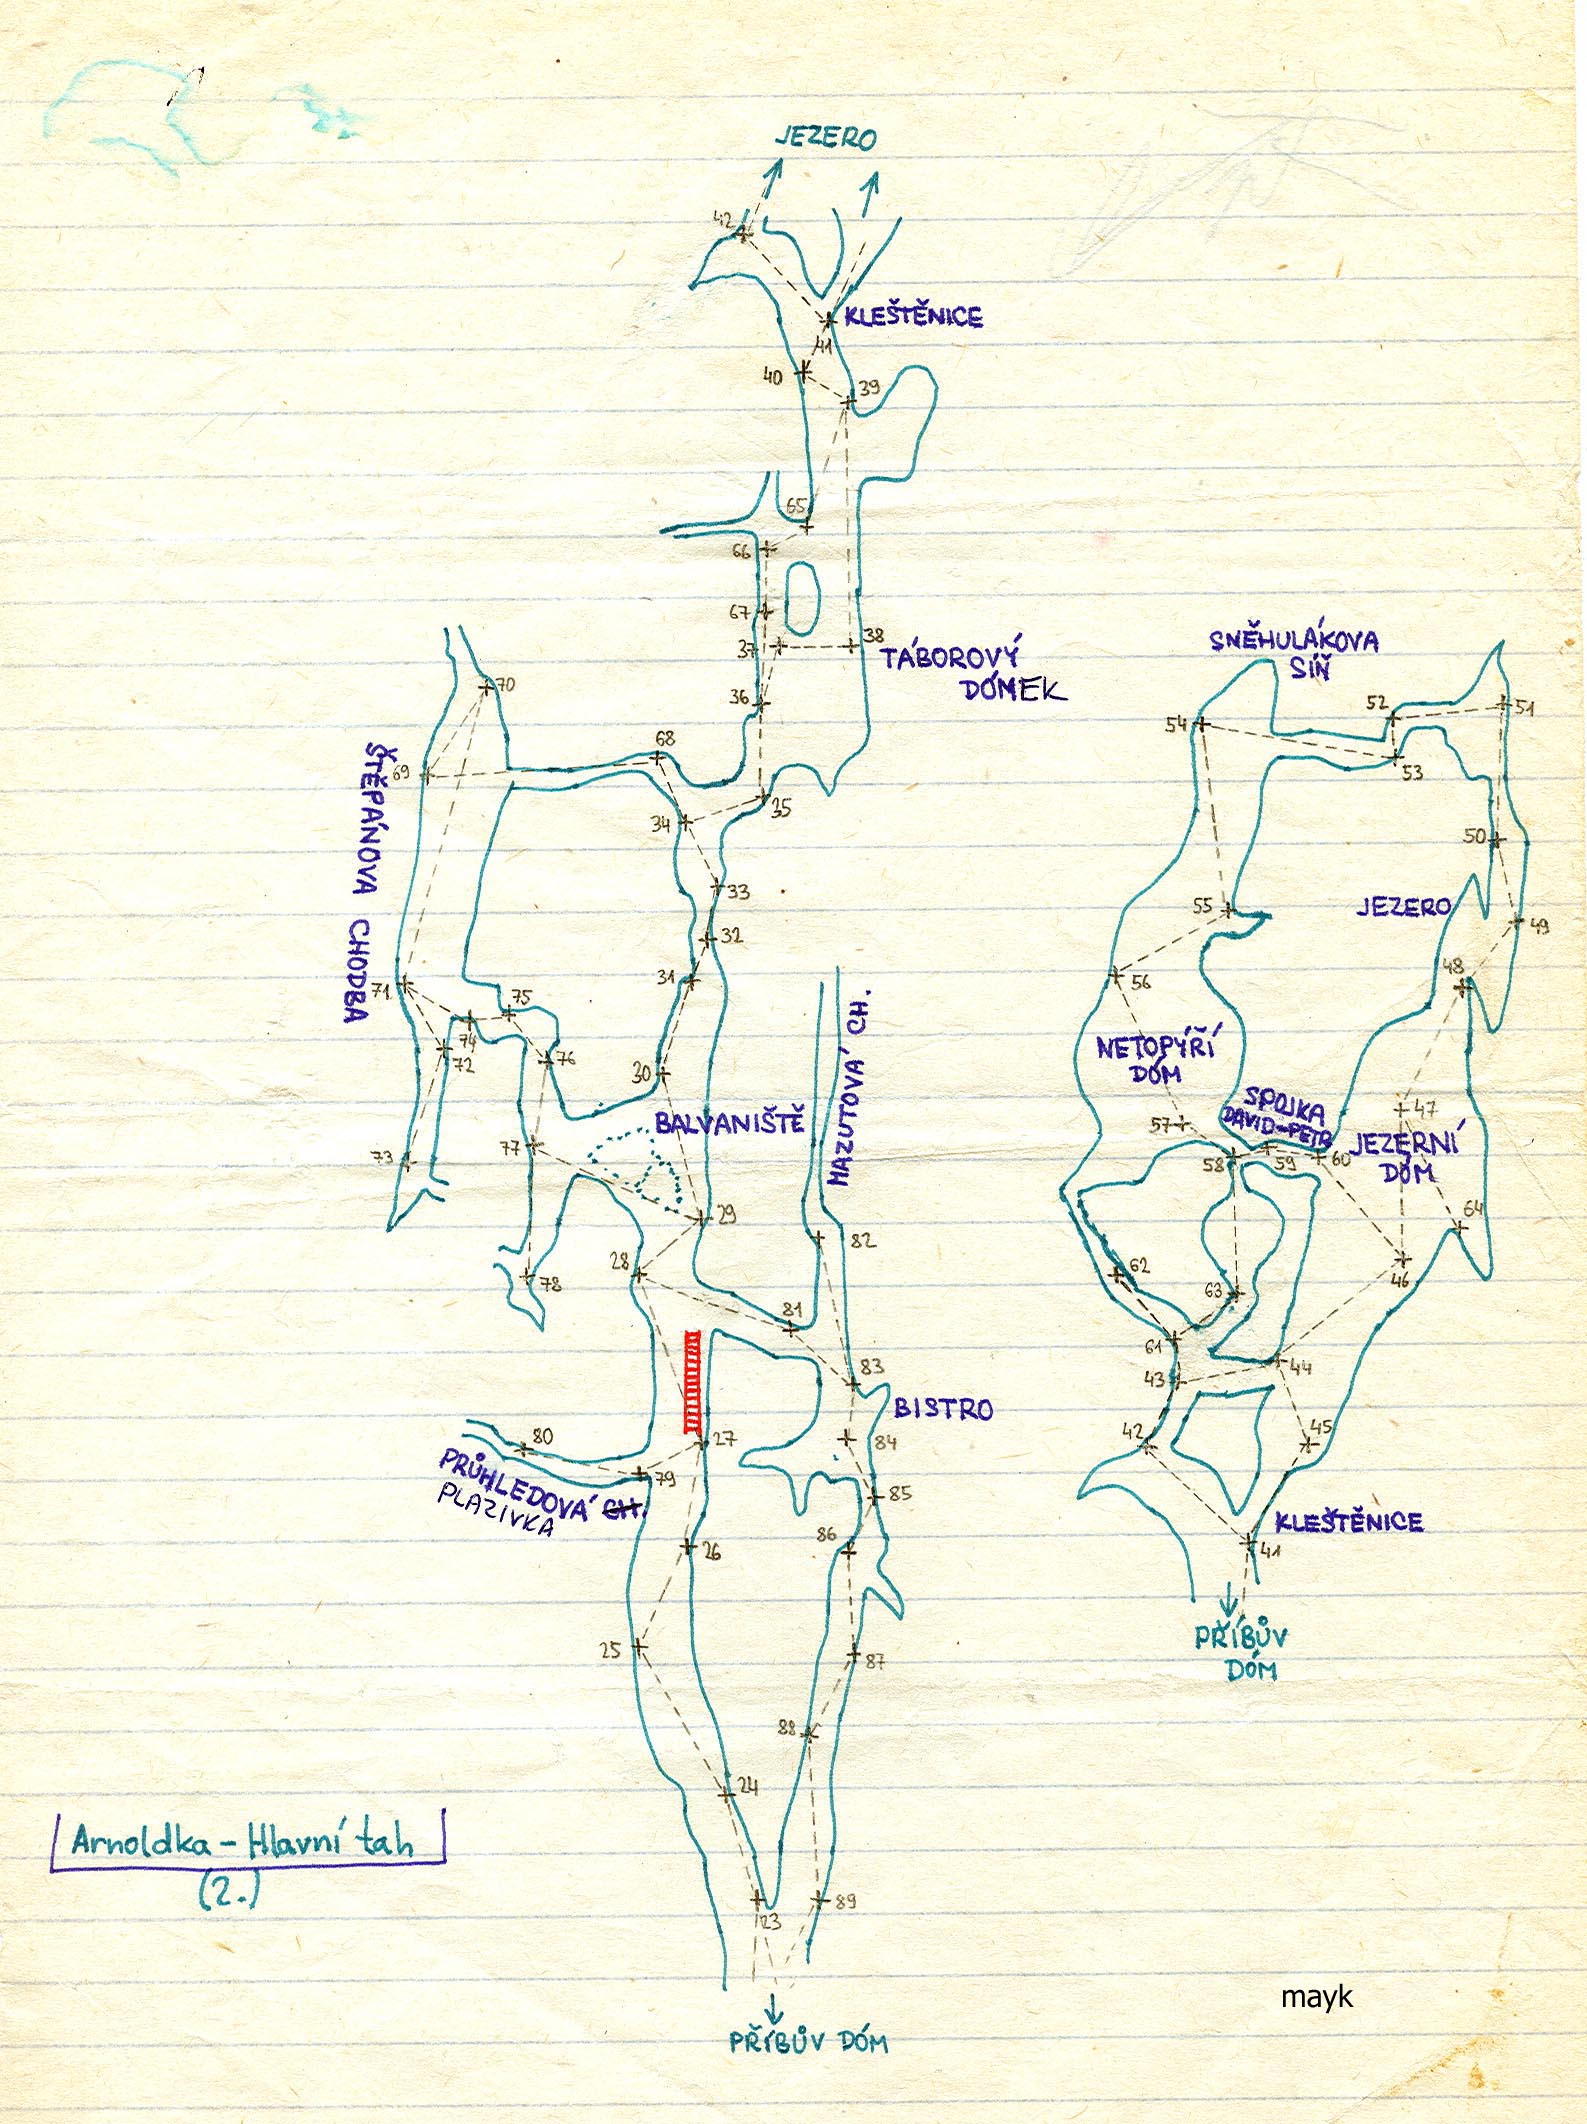 JEZERO
42
KLEŠTĚNICE
41
40
39
65
66
67
37
38
TÁBOROVÝ
DÓMEK
36
70
68
69
ŠTĚPÁNOVA CHODBA
35
34
33
32
31
71
75
74
72
76
30
BALVANIŠTĚ
MAZUTOVÁ CH.
77
73
29
82
28
78
81
83
BISTRO
27
84
80
79
PRŮHLEDOVÁ CH.
PLAZIVKA
85
86
26
25
87
88
24
89
23
PŘÍBŮV DÓM
SNĚHULÁKOVA
SÍŇ
52
51
54
53
50
55
JEZERO
49
48
56
NETOPÝŘÍ
DÓM
SPOJKA
DAVID-PETR
47
57
58
59
60
JEZERNÍ
DÓM
64
62
63
46
61
43
44
42
45
KLEŠTĚNICE
41
PŘÍBŮV
DÓM
Arnoldka - Hlavní tah
(2.)
mayk